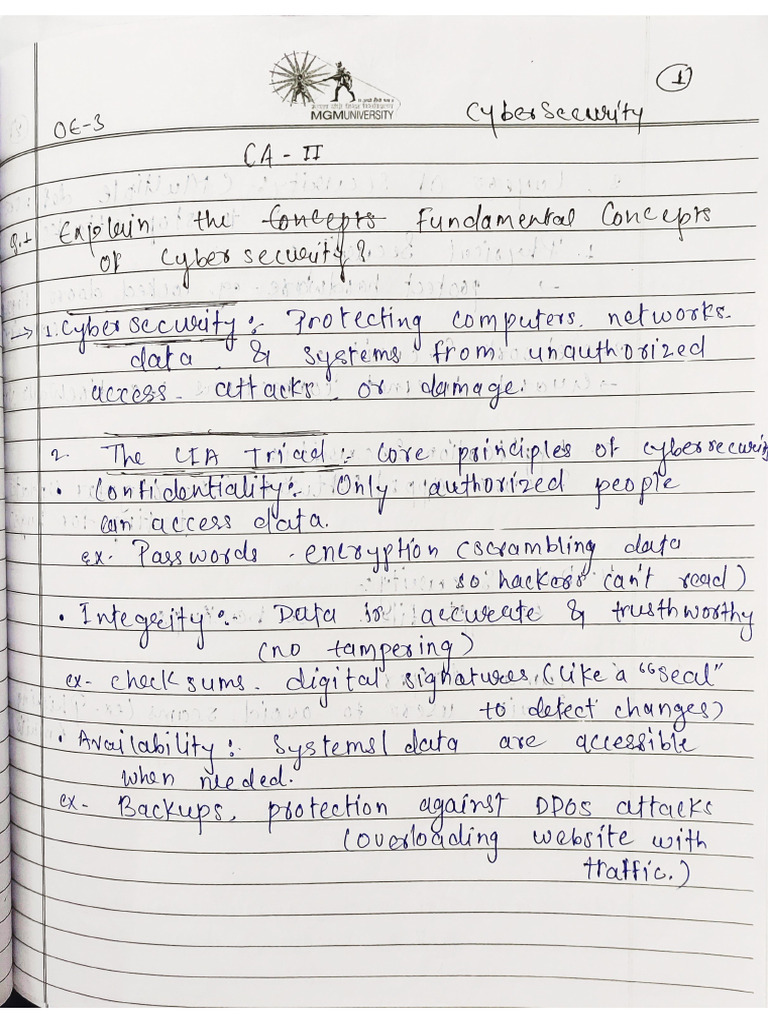 1
MGMUNIVERSITY
OE-3
Cybersecurity
CA - II
Q.1 Explain the Concepts Fundamental Concepts
of Cybersecurity?
→ 1. Cybersecurity :- Protecting computers, networks.
data & systems from unauthorized
access. attacks. or damage.
2. The CIA Triad :- Core principles of cybersecurity
• Confidentiality :- Only authorized people
can access data.
ex- Passwords. encryption (scrambling data
so hackers can't read)
• Integrity :- Data is accurate & trusthworthy
(no tampering)
ex- checksums. digital signatures. (like a "seal"
to detect changes)
• Availability :- Systems/ data are accessible
when needed.
ex- Backups, protection against DDOS attacks
(overloading website with
traffic.)